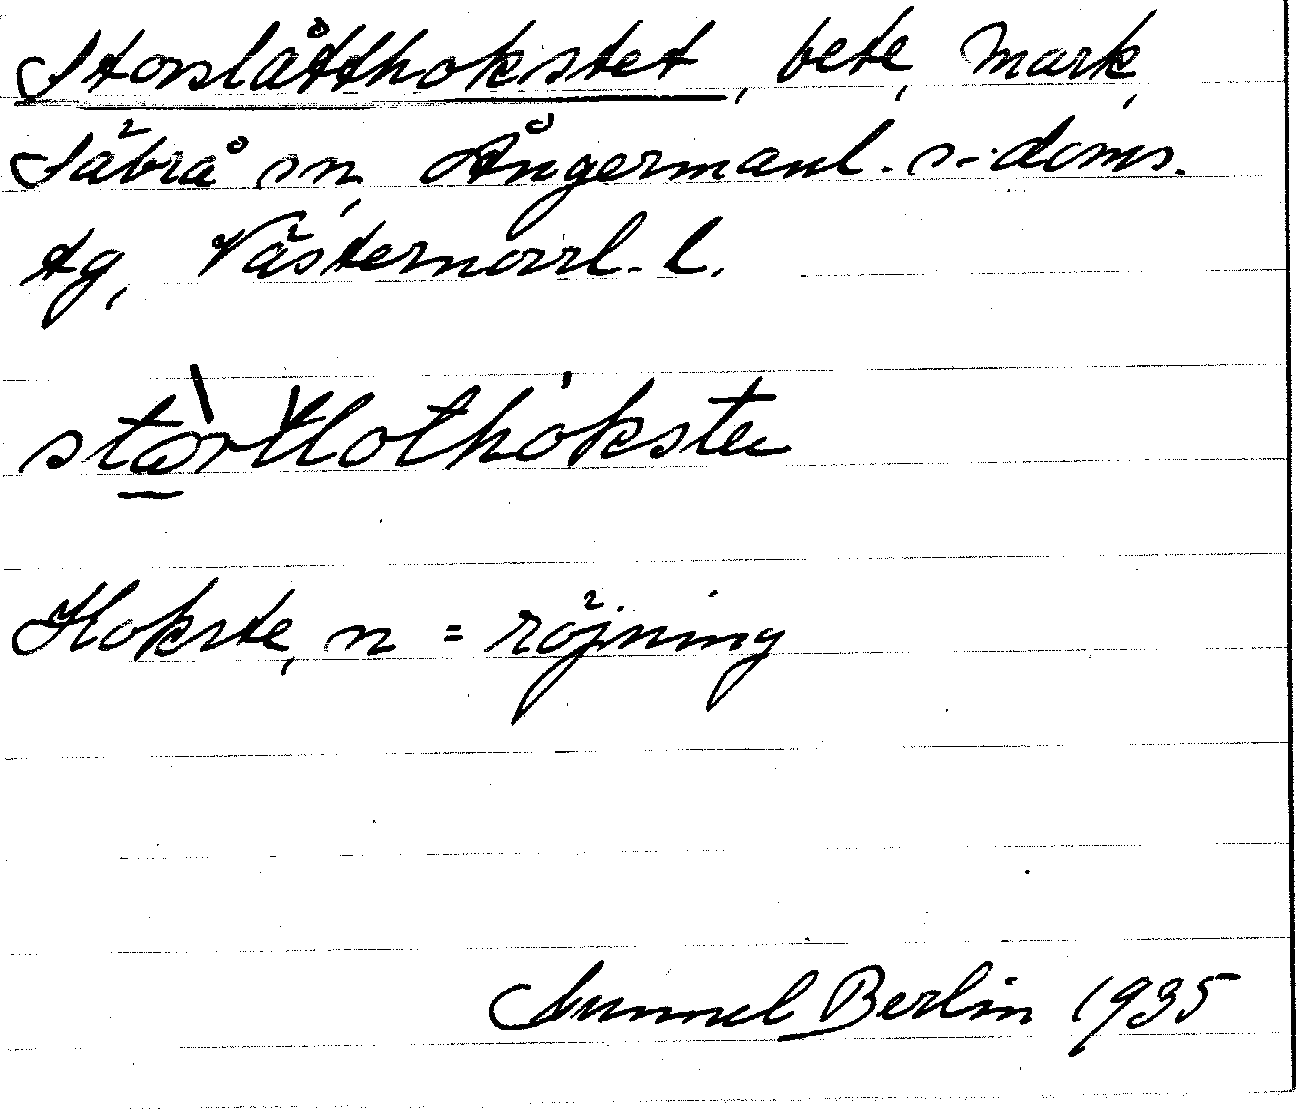 Storslåtthokstet, bete, mark,
Säbrå sn, Ångermanl. s. doms.
tg, Västernorrl. l.
Hokste, n = röjning
Gunnel Berlin 1935